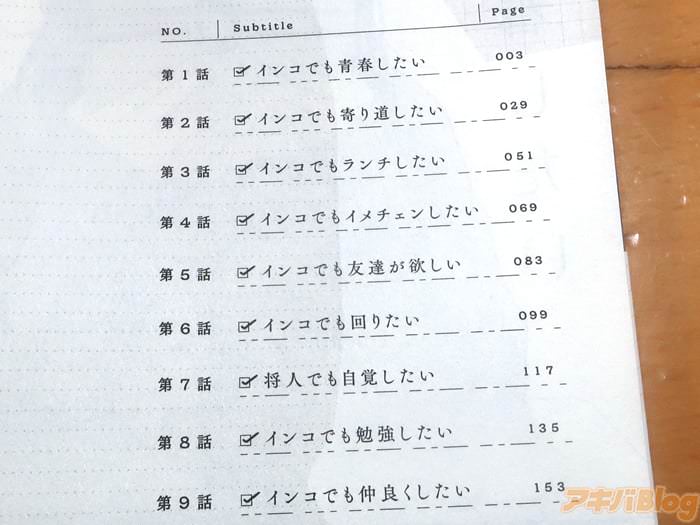 NO. Subtitle Page
第1話 インコでも青春したい 003
第2話 インコでも寄り道したい 029
第3話 インコでもランチしたい 051
第4話 インコでもイメチェンしたい 069
第5話 インコでも友達が欲しい 083
第6話 インコでも回りたい 099
第7話 将人でも自覚したい 117
第8話 インコでも勉強したい 135
第9話 インコでも仲良くしたい 153
アキバBlog